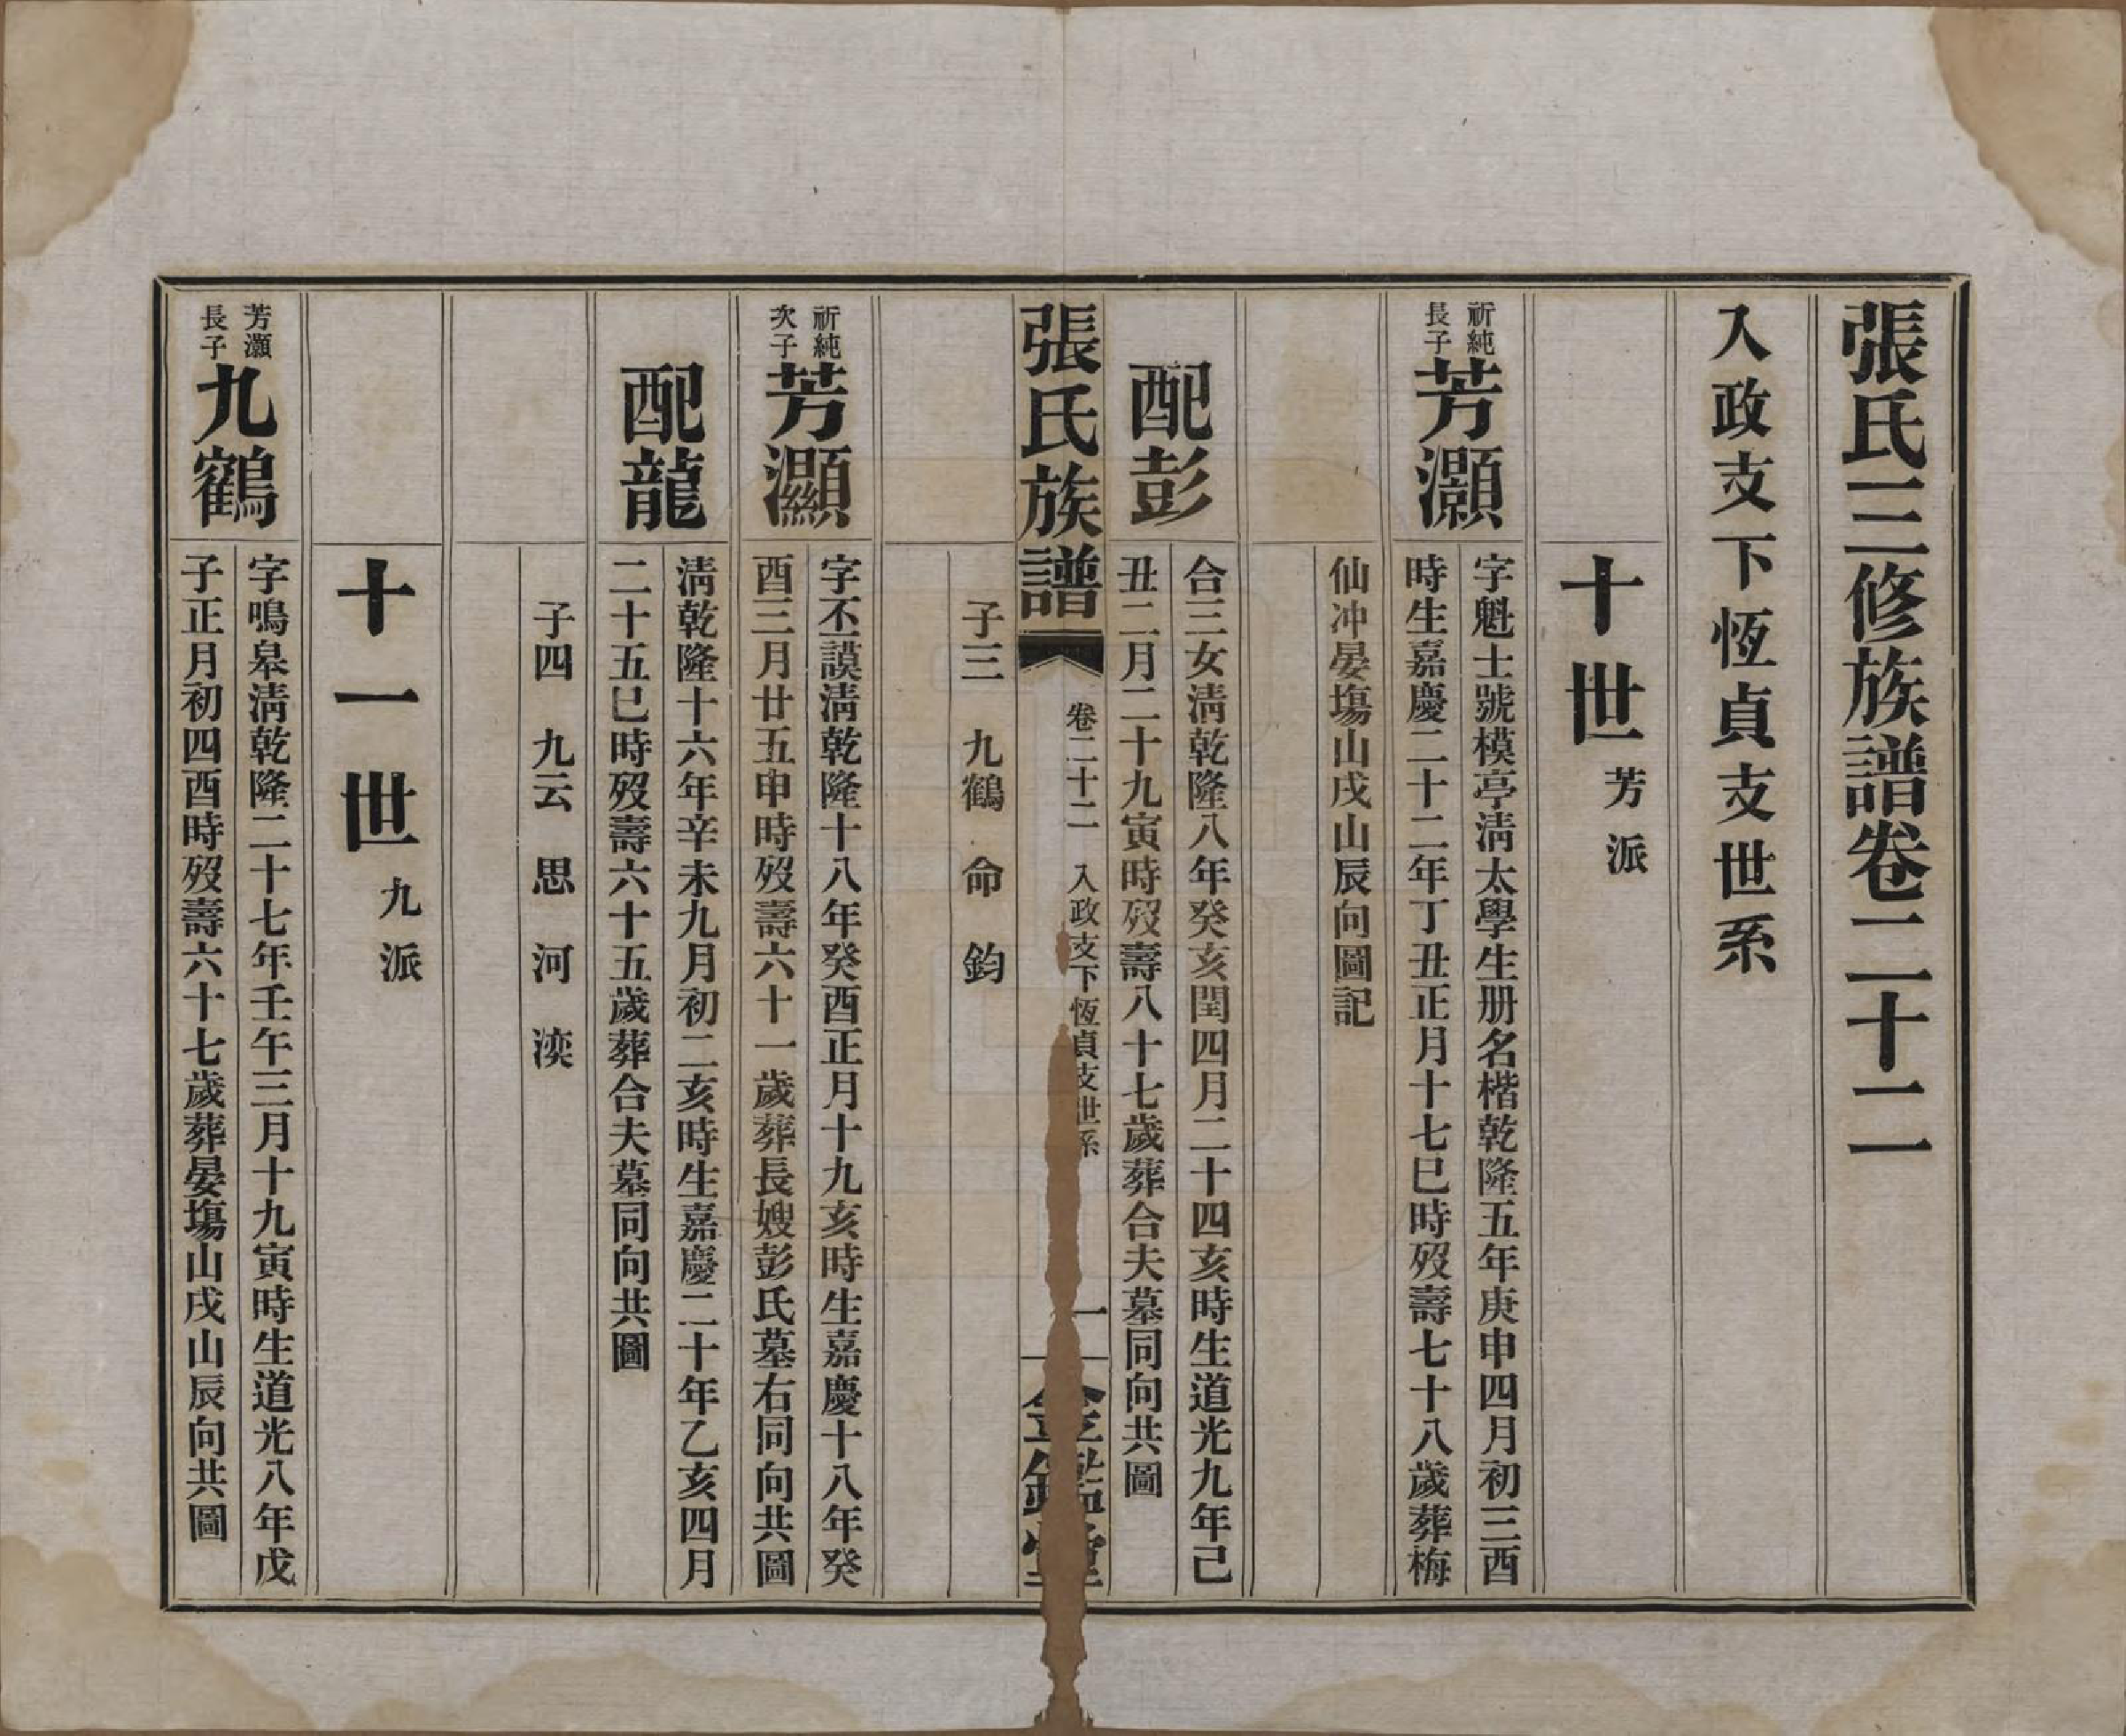 張氏三修族譜卷二十二
入政支下恆貞支世系
十世 芳派
祈純
長子
芳灝
字魁士號模亭淸太學生册名楷乾隆五年庚申四月初三酉
時生嘉慶二十二年丁丑正月十七巳時歿壽七十八歲葬梅
仙冲晏塲山戌山辰向圖記
配彭
合三女淸乾隆八年癸亥閏四月二十四亥時生道光九年己
丑二月二十九寅時歿壽八十七歲葬合夫墓同向共圖
張氏族譜
卷二十二 入政支下恆貞支世系
一
金鑑堂
子三 九鶴 命 鈞
祈純
次子
芳灦
字不謨淸乾隆十八年癸酉正月十九亥時生嘉慶十八年癸
酉三月廿五申時歿壽六十一歲葬長嫂彭氏墓右同向共圖
配龍
淸乾隆十六年辛未九月初二亥時生嘉慶二十年乙亥四月
二十五巳時歿壽六十五歲葬合夫墓同向共圖
子四 九云 思 河 湙
十一世 九派
芳灝
長子
九鶴
字鳴皋淸乾隆二十七年壬午三月十九寅時生道光八年戊
子正月初四酉時歿壽六十七歲葬晏塲山戌山辰向共圖